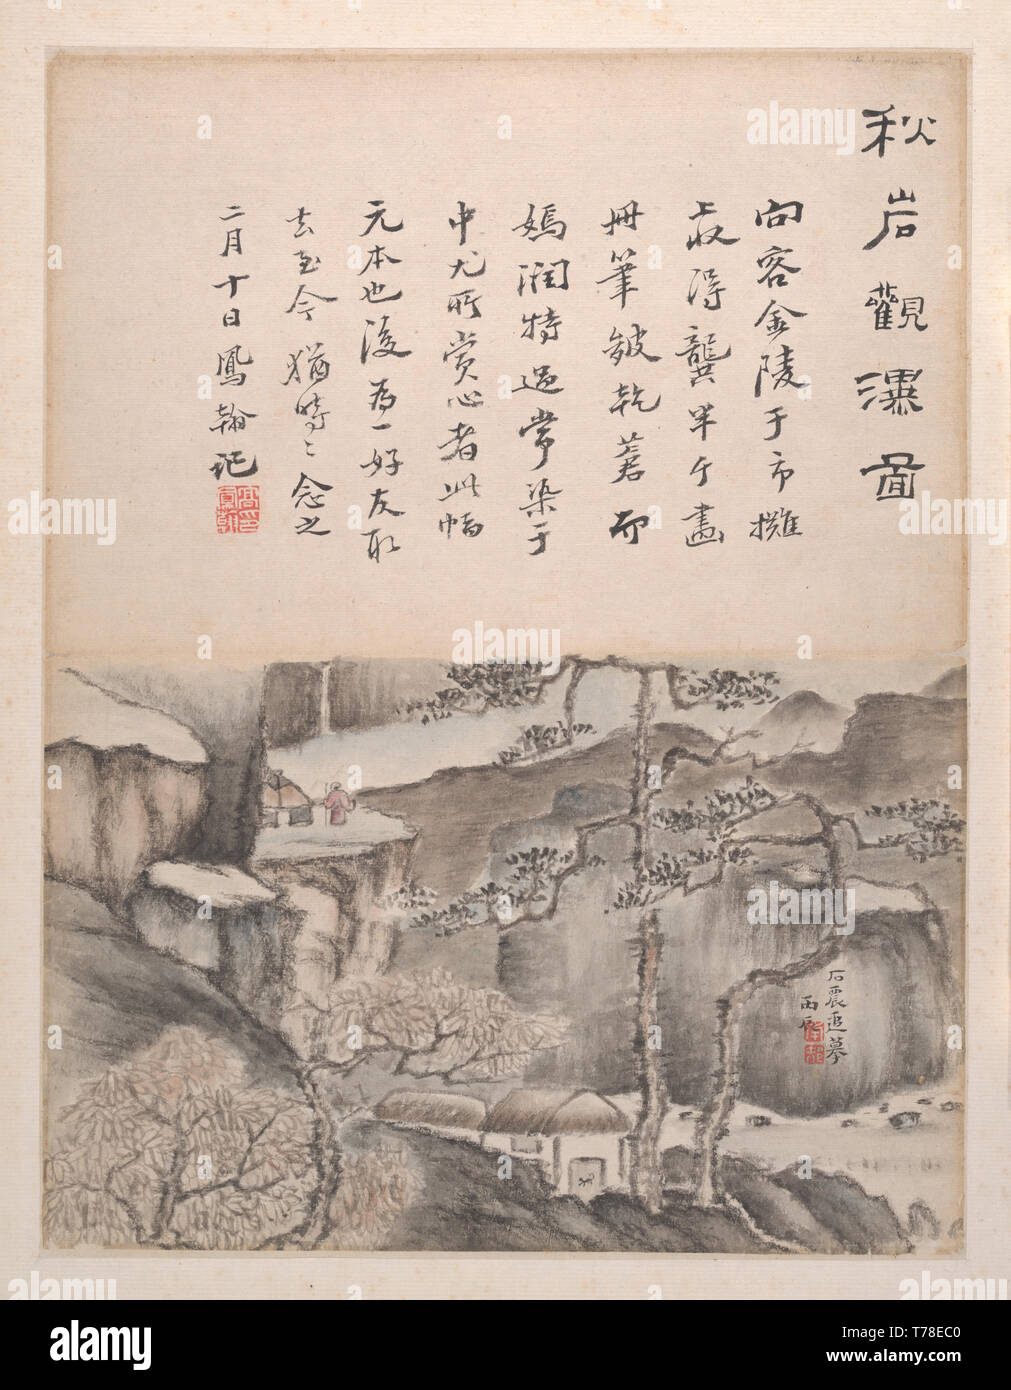 秋岩觀瀑圖
向容金陵于市攤
上收得龔半千畫
冊筆皴乾蒼而
嫣潤特過常染于
中尤所賞心者此幅
元本也後為一好友取
去至今猶時〻念之
二月十日鳳翰記
石震追摹
丙辰
alamy
T78EC0
www.alamy.com